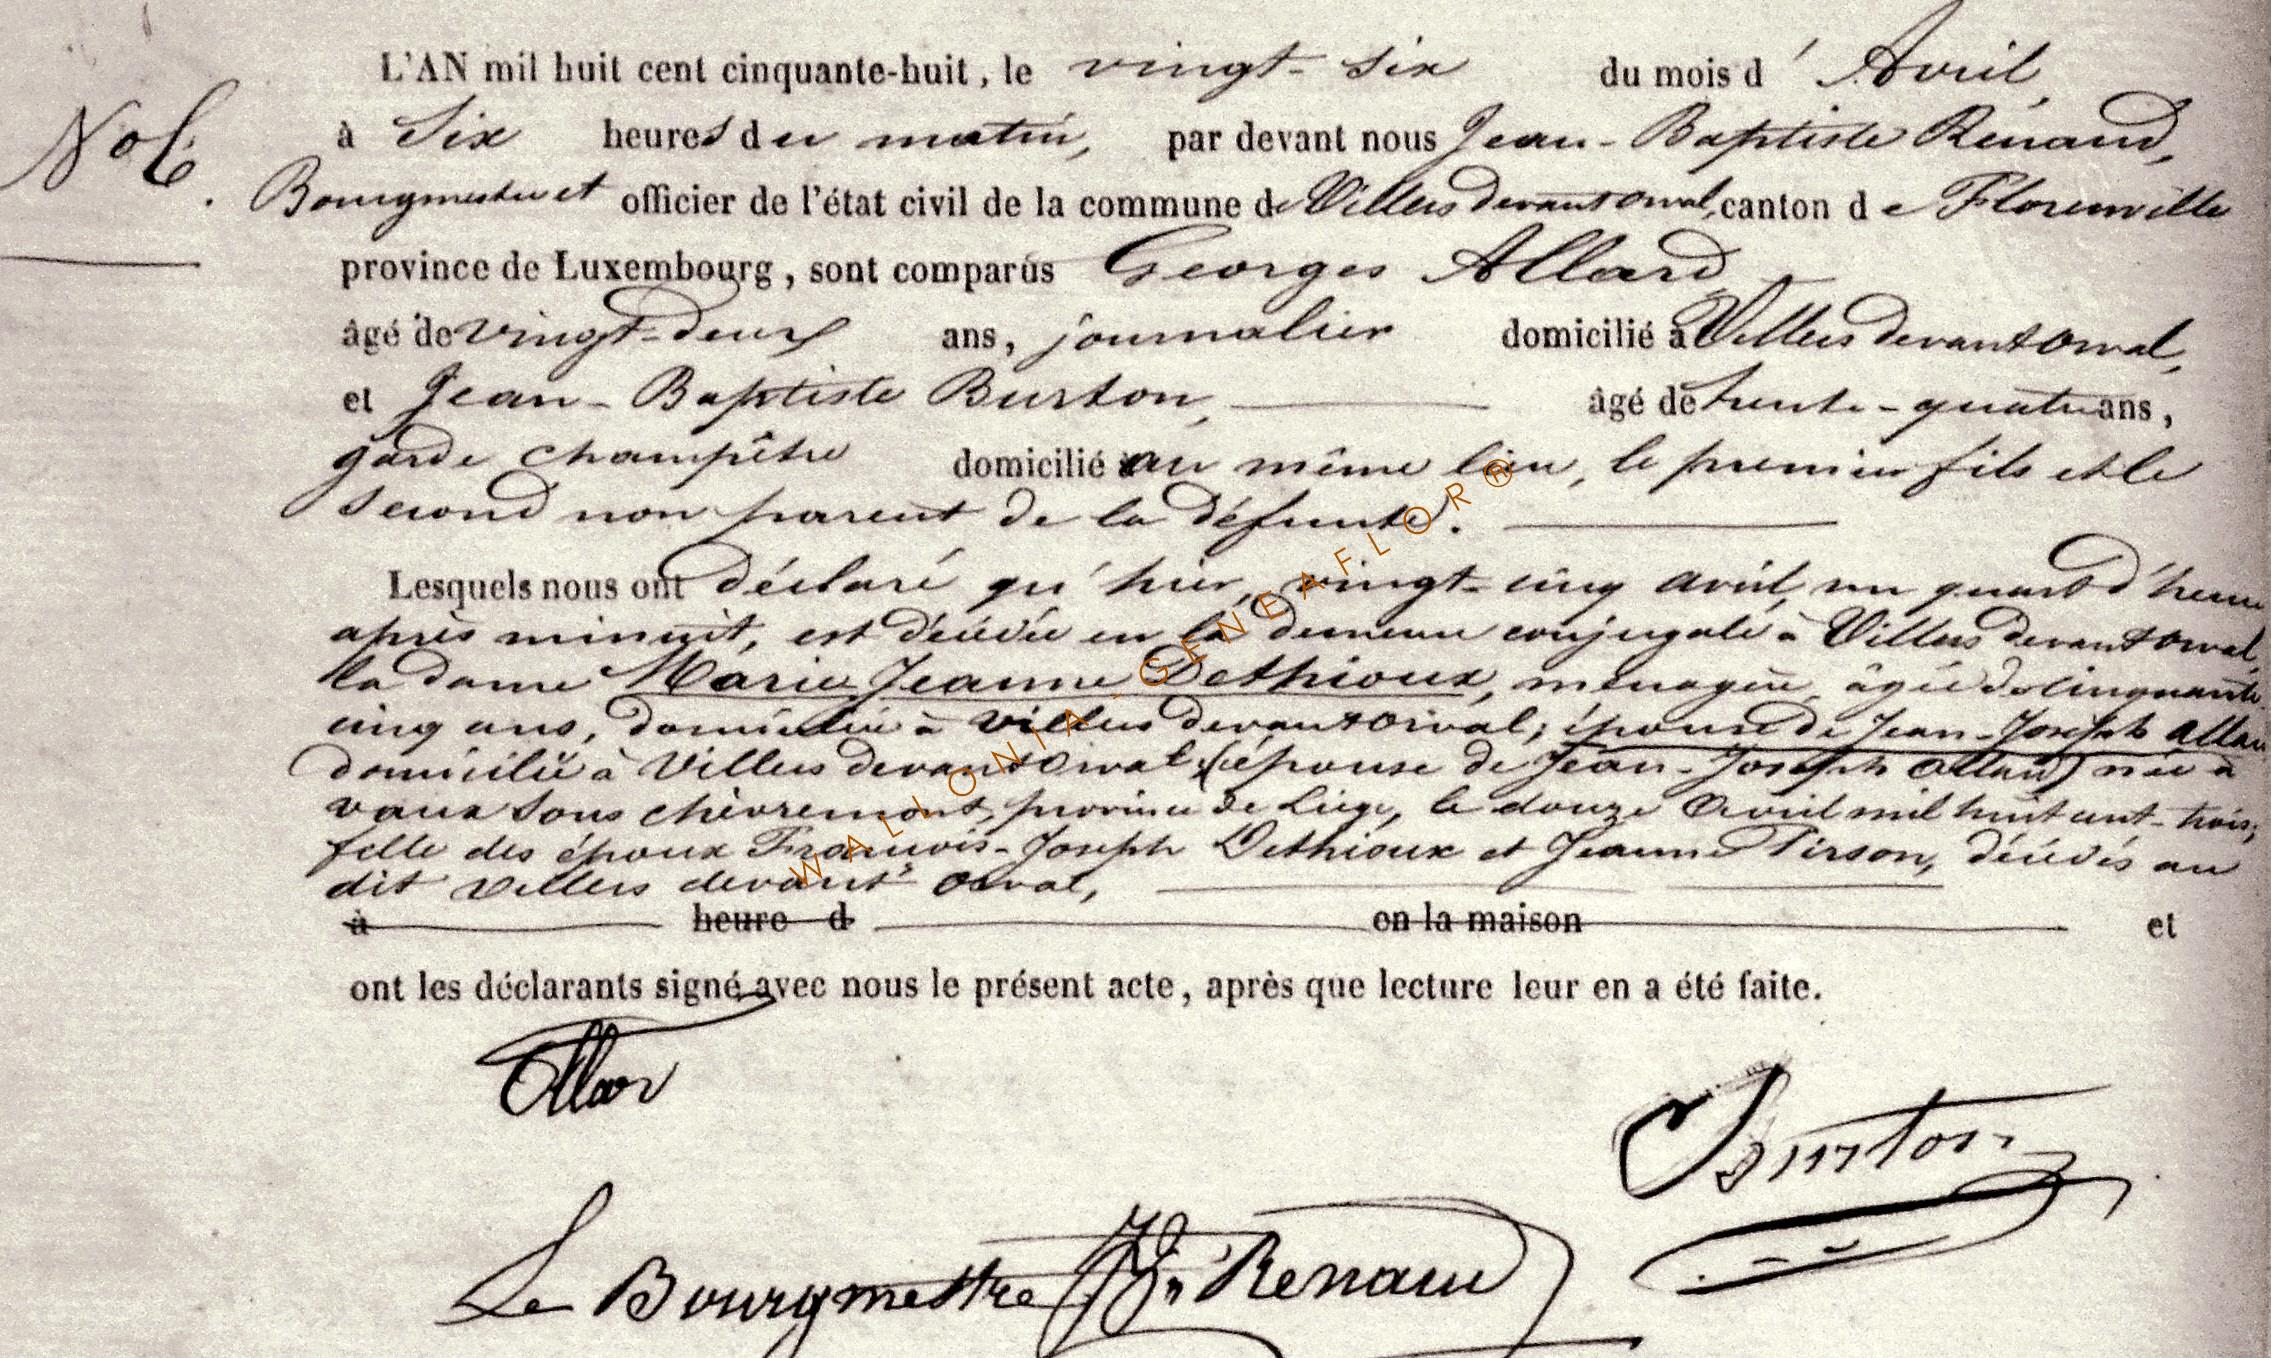 L'AN mil huit cent cinquante-huit, le vingt-six du mois d'Avril,
No 6. à Six heures du matin, par devant nous Jean-Baptiste Renaud,
Bourgmestre et officier de l'état civil de la commune de Villers devant Orval, canton de Florenville
province de Luxembourg, sont comparus Georges Allard,
âgé de vingt-deux ans, journalier domicilié à Villers devant Orval,
et Jean-Baptiste Burton, âgé de trente-quatre ans,
garde champêtre domicilié au même lieu, le premier fils et le
second non parent de la défunte.
Lesquels nous ont déclaré qu'hier, vingt-cinq avril, un quart d'heure
après minuit, est décédée en la demeure conjugale à Villers devant Orval,
la dame Marie Jeanne Dethioux, ménagère, âgée de cinquante
cinq ans, domiciliée à Villers devant Orval, épouse de Jean-Joseph Allard
domicilié à Villers devant Orval, (épouse de Jean-Joseph allard) née à
vaux sous chèvremont, province de Liège, le douze avril mil huit cent-trois,
fille des époux François-Joseph Dethioux et Jeanne Pirson, décédés au
dit villers devant orval,
à heure d en la maison et
ont les déclarants signé avec nous le présent acte, après que lecture leur en a été faite.
Allar
Burton
Le Bourgmestre JB Renaud
WALLONIA-GENEAFLOR®